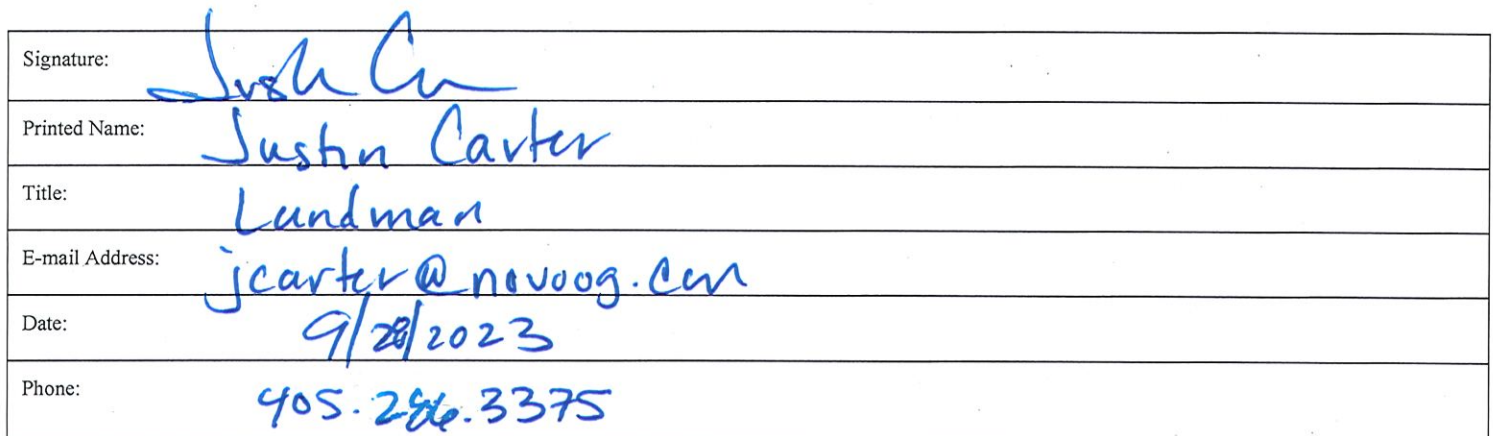 Signature: Justin Carter
Printed Name: Justin Carter
Title: Landman
E-mail Address: jcarter@novoog.com
Date: 9/28/2023
Phone: 405.286.3375